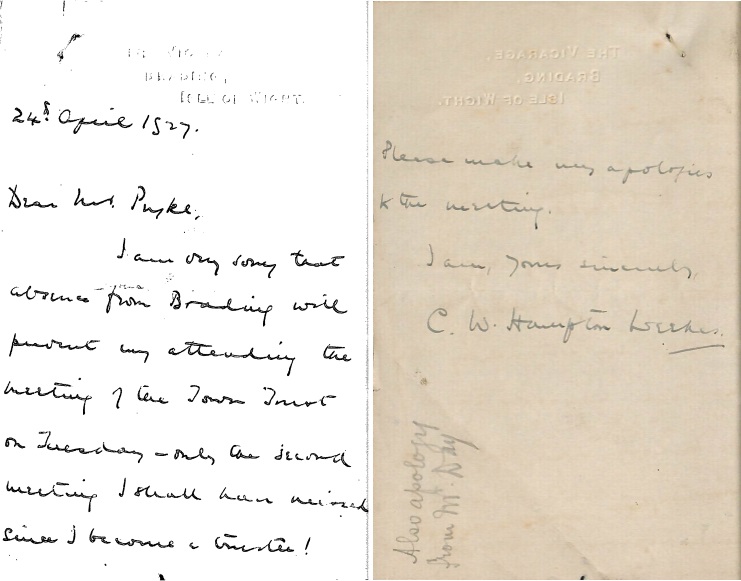 THE VICARAGE,
BRADING,
ISLE OF WIGHT.
24th April 1927.
Dear Mr. Pyke,
I am very sorry that
absence from Brading will
prevent my attending the
meeting of the Town Trust
on Tuesday – only the second
meeting I shall have missed
since I became a trustee!
THE VICARAGE,
BRADING,
ISLE OF WIGHT.
Please make my apologies
to the meeting.
I am, yours sincerely,
C. W. Hampton Weekes.
Also apology
from Mr. Day